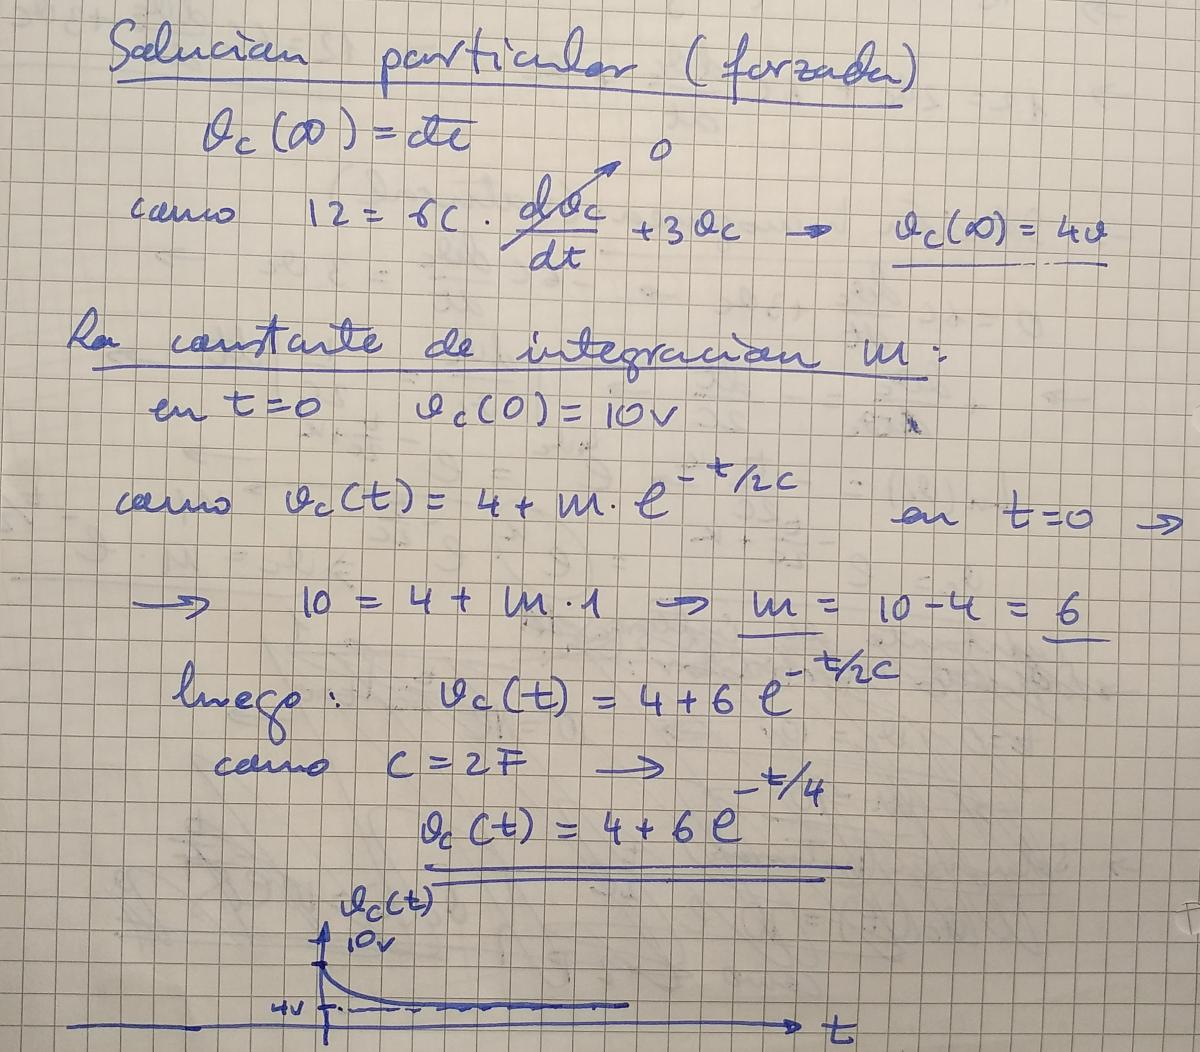 Solución particular (forzada)
vc(∞) = cte
como 12 = 6C · dvc/dt + 3vc → vc(∞) = 4v
0
La constante de integración m:
en t=0 vc(0) = 10v
como vc(t) = 4 + m · e^-t/2C en t=0 →
→ 10 = 4 + m · 1 → m = 10 - 4 = 6
luego: vc(t) = 4 + 6 e^-t/2C
como C = 2F →
vc(t) = 4 + 6 e^-t/4
vc(t)
10v
4v
t